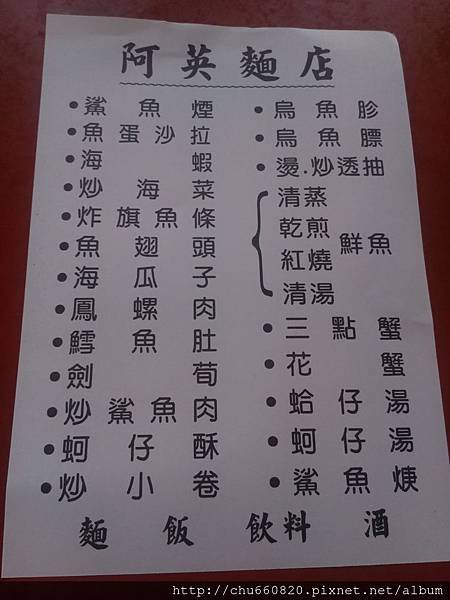 阿英麵店
•鯊魚煙
•魚蛋沙拉
•海蝦
•炒海菜
•炸旗魚條
•魚翅頭
•海瓜子
•鳳螺肉
•鱈魚肚
•劍荀
•炒鯊魚肉
•蚵仔酥
•炒小卷
•烏魚胗
•烏魚膘
•燙.炒透抽
清蒸
乾煎
紅燒
清湯
鮮魚
•三點蟹
•花蟹
•蛤仔湯
•蚵仔湯
•鯊魚焿
麵 飯 飲料 酒
http://chu660820.pixnet.net/album